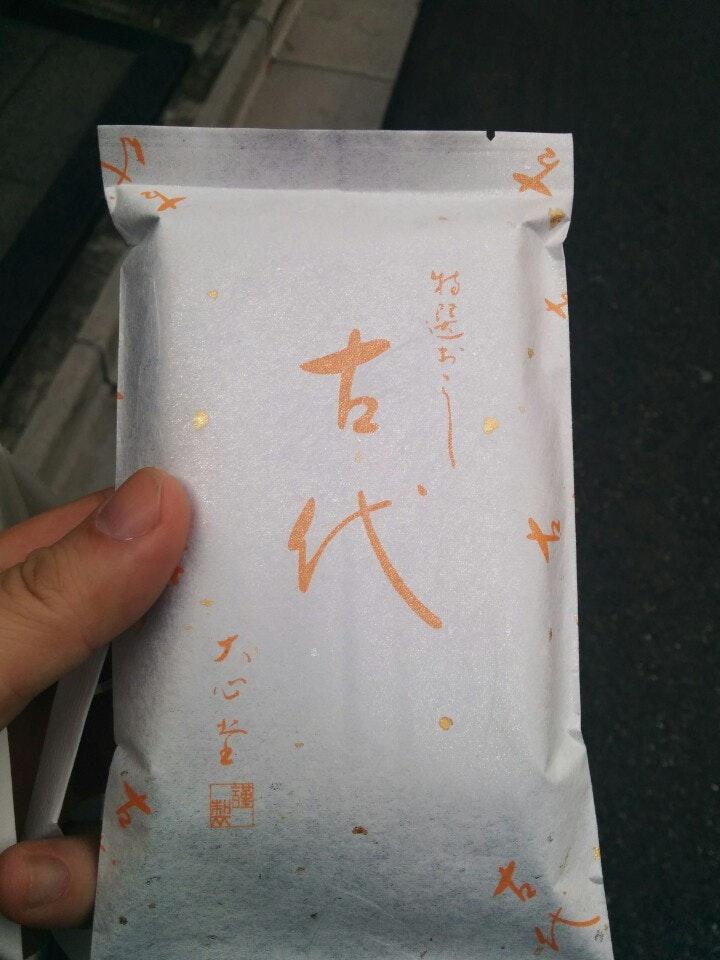 特選おこし
古代
大心堂
謹製